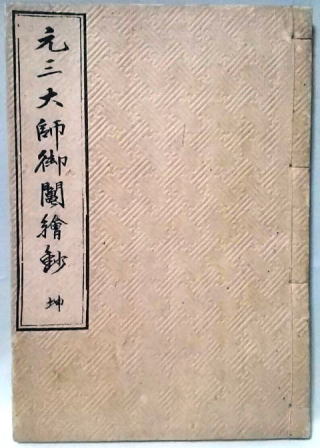 元三大師御鬮繪鈔 坤